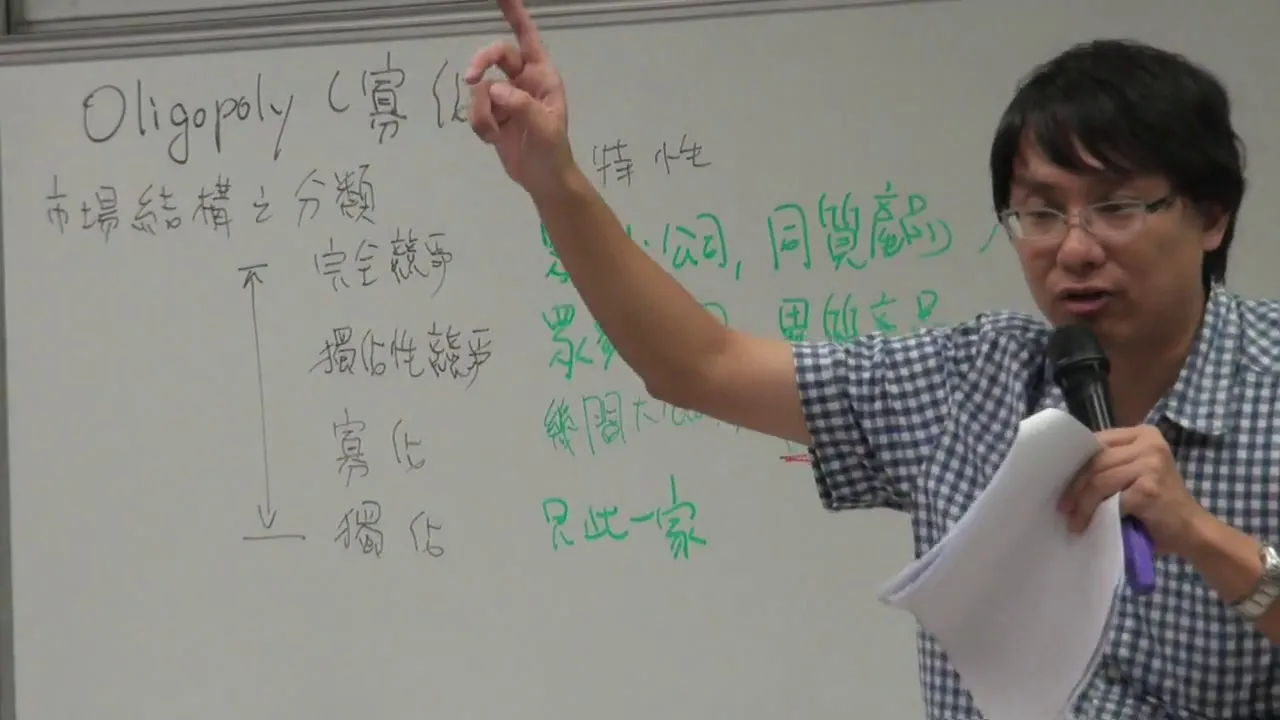 Oligopoly (寡佔
特性
市場結構之分類
完全競爭 眾 小公司, 同質產品,
獨佔性競爭 眾多 異質產品
寡佔 幾間大公司
獨佔 只此一家